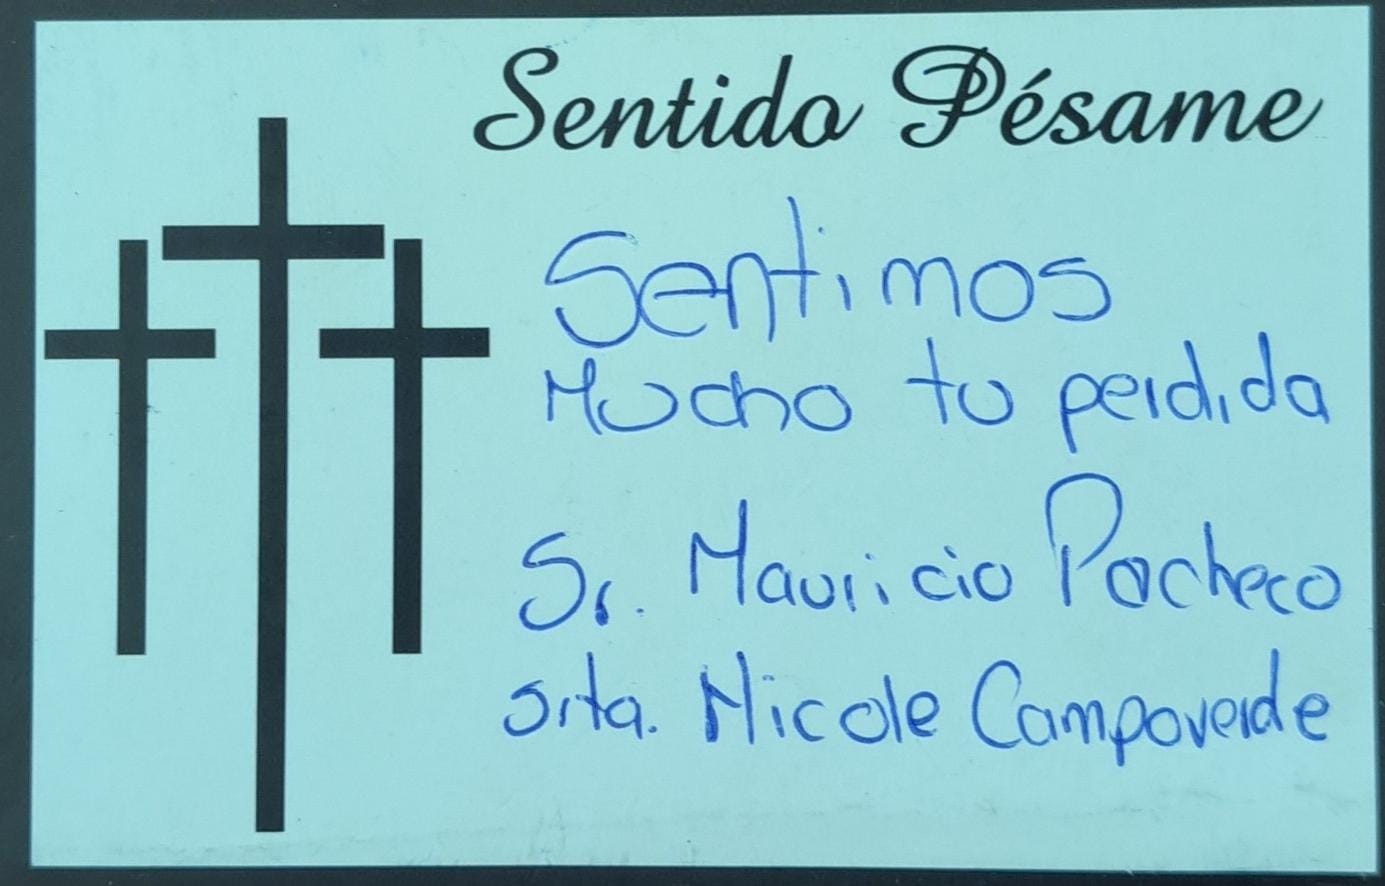 Sentido Pésame
Sentimos
Mucho tu perdida
Sr. Mauricio Pacheco
srta. Nicole Campoverde